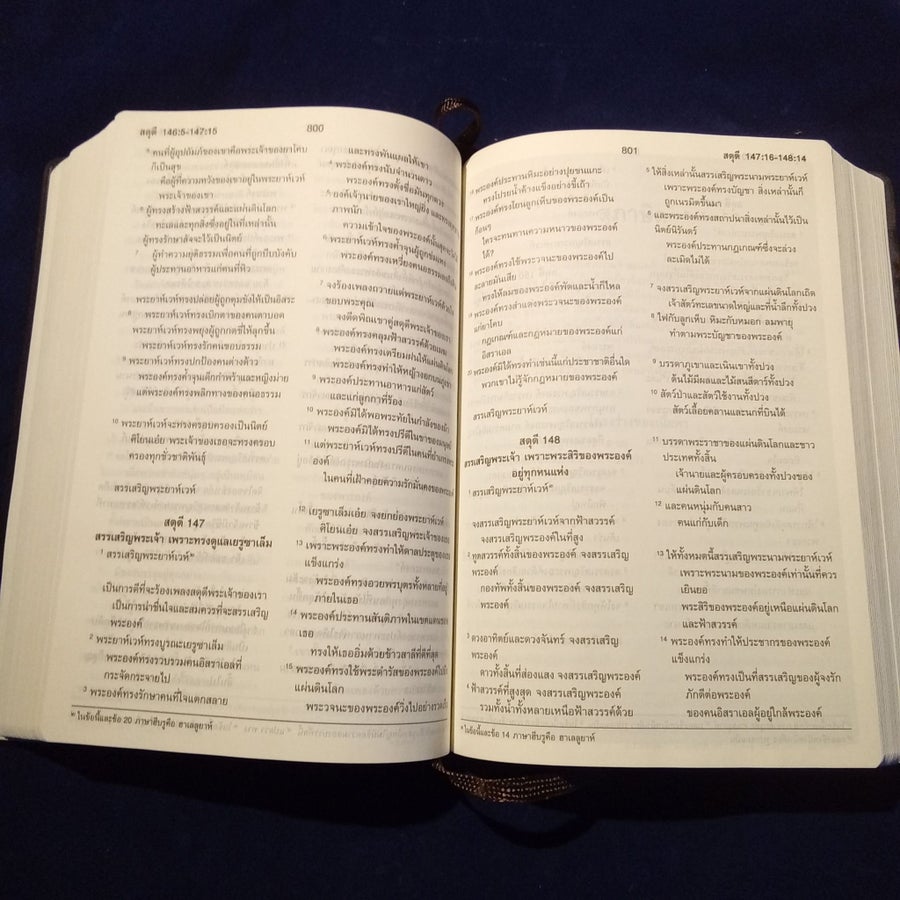 สดุดี 146:5-147:15
800
5 คนที่ผู้อุปถัมภ์ของเขาคือพระเจ้าของยาโคบ
ก็เป็นสุข
คือผู้ที่ความหวังของเขาอยู่ในพระยาห์เวห์
พระเจ้าของเขา
6 ผู้ทรงสร้างฟ้าสวรรค์และแผ่นดินโลก
ทะเลและทุกสิ่งซึ่งอยู่ในที่เหล่านั้น
ผู้ทรงรักษาสัจจะไว้เป็นนิตย์
7 ผู้ทำความยุติธรรมเพื่อคนที่ถูกบีบบังคับ
ผู้ประทานอาหารแก่คนที่หิว
พระยาห์เวห์ทรงปล่อยผู้ถูกคุมขังให้เป็นอิสระ
8 พระยาห์เวห์ทรงเบิกตาของคนตาบอด
พระยาห์เวห์ทรงพยุงผู้ถูกกดขี่ให้ลุกขึ้น
พระยาห์เวห์ทรงรักคนชอบธรรม
9 พระยาห์เวห์ทรงปกป้องคนต่างด้าว
พระองค์ทรงค้ำจุนเด็กกำพร้าและหญิงม่าย
แต่พระองค์ทรงพลิกทางของคนอธรรม
10 พระยาห์เวห์จะทรงครอบครองเป็นนิตย์
ศิโยนเอ๋ย พระเจ้าของเธอจะทรงครอบ
ครองทุกชั่วชาติพันธุ์
สรรเสริญพระยาห์เวห์
สดุดี 147
สรรเสริญพระเจ้า เพราะทรงดูแลเยรูซาเล็ม
1 สรรเสริญพระยาห์เวห์
เป็นการดีที่จะร้องเพลงสดุดีพระเจ้าของเรา
เป็นการน่าชื่นใจและสมควรที่จะสรรเสริญ
พระองค์
2 พระยาห์เวห์ทรงบูรณะเยรูซาเล็ม
พระองค์ทรงรวบรวมคนอิสราเอลที่
กระจัดกระจายไป
3 พระองค์ทรงรักษาคนที่ใจแตกสลาย
ในข้อนี้และข้อ 20 ภาษาฮีบรูคือ ฮาเลลูยาห์
และทรงพันแผลให้เขา
4 พระองค์ทรงนับจำนวนดาว
พระองค์ทรงตั้งชื่อมันทุกดวง
5 องค์เจ้านายของเราใหญ่ยิ่ง และทรง
ภาพนัก
ความเข้าใจของพระองค์นั้นสุดจะ
6 พระยาห์เวห์ทรงค้ำจุนผู้ถูกข่มเหง
พระองค์ทรงเหวี่ยงคนอธรรมลง
7 จงร้องเพลงถวายแด่พระยาห์เวห์ด้วย
ขอบพระคุณ
จงดีดพิณเขาคู่สดุดีพระเจ้าของเรา
8 พระองค์ทรงคลุมฟ้าสวรรค์ด้วยเมฆ
พระองค์ทรงเตรียมฝนให้แผ่นดินโลก
พระองค์ทรงทำให้หญ้างอกบนภูเขา
9 พระองค์ประทานอาหารแก่สัตว์
และแก่ลูกกาที่ร้อง
10 พระองค์มิได้พอพระทัยในกำลังของม้า
พระองค์มิได้ทรงปรีดีในขาของมนุษย์
11 แต่พระยาห์เวห์ทรงปรีดีในคนที่ยำเกรงพระ
องค์
ในคนที่เฝ้าคอยความรักมั่นคงของพระองค์
12 เยรูซาเล็มเอ๋ย จงยกย่องพระยาห์เวห์
ศิโยนเอ๋ย จงสรรเสริญพระเจ้าของเธอ
13 เพราะพระองค์ทรงทำให้ดาลประตูของเธอ
แข็งแกร่ง
พระองค์ทรงอวยพรบุตรทั้งหลายที่อยู่
ภายในเธอ
14 พระองค์ประทานสันติภาพในเขตแดนของ
เธอ
ทรงให้เธออิ่มด้วยข้าวสาลีที่ดีที่สุด
15 พระองค์ทรงใช้พระดำรัสของพระองค์ไปยัง
แผ่นดินโลก
พระวจนะของพระองค์วิ่งไปอย่างรวดเร็ว
801
สดุดี 147:16-148:14
16 พระองค์ประทานหิมะอย่างปุยขนแกะ
ทรงโปรยน้ำค้างแข็งอย่างขี้เถ้า
17 พระองค์ทรงโยนลูกเห็บของพระองค์เป็น
ก้อนๆ
ใครจะทนทานความหนาวของพระองค์
ได้?
18 พระองค์ทรงใช้พระวจนะของพระองค์ไป
ละลายมันเสีย
ทรงให้ลมของพระองค์พัดและน้ำก็ไหล
19 พระองค์ทรงสำแดงพระวจนะของพระองค์
แก่ยาโคบ
กฎเกณฑ์และกฎหมายของพระองค์แก่
อิสราเอล
20 พระองค์มิได้ทรงทำเช่นนี้แก่ประชาชาติอื่นใด
พวกเขาไม่รู้จักกฎหมายของพระองค์
สรรเสริญพระยาห์เวห์
สดุดี 148
สรรเสริญพระเจ้า เพราะพระสิริของพระองค์
อยู่ทุกหนแห่ง
1 สรรเสริญพระยาห์เวห์
จงสรรเสริญพระยาห์เวห์จากฟ้าสวรรค์
จงสรรเสริญพระองค์ในที่สูง
2 ทูตสวรรค์ทั้งสิ้นของพระองค์ จงสรรเสริญ
พระองค์
กองทัพทั้งสิ้นของพระองค์ จงสรรเสริญ
พระองค์
3 ดวงอาทิตย์และดวงจันทร์ จงสรรเสริญ
พระองค์
ดาวทั้งสิ้นที่ส่องแสง จงสรรเสริญพระองค์
4 ฟ้าสวรรค์ที่สูงสุด จงสรรเสริญพระองค์
รวมทั้งน้ำทั้งหลายเหนือฟ้าสวรรค์ด้วย
ในข้อนี้และข้อ 14 ภาษาฮีบรูคือ ฮาเลลูยาห์
5 ให้สิ่งเหล่านั้นสรรเสริญพระนามพระยาห์เวห์
เพราะพระองค์ทรงบัญชา สิ่งเหล่านั้นก็
ถูกเนรมิตขึ้นมา
6 และพระองค์ทรงสถาปนาสิ่งเหล่านั้นไว้เป็น
นิตย์นิรันดร์
พระองค์ประทานกฎเกณฑ์ซึ่งจะล่วง
ละเมิดไม่ได้
7 จงสรรเสริญพระยาห์เวห์จากแผ่นดินโลกเถิด
เจ้าสัตว์ทะเลขนาดใหญ่และที่น้ำลึกทั้งปวง
8 ไฟกับลูกเห็บ หิมะกับหมอก ลมพายุ
ทำตามพระบัญชาของพระองค์
9 บรรดาภูเขาและเนินเขาทั้งปวง
ต้นไม้มีผลและไม้สนสีดาร์ทั้งปวง
10 สัตว์ป่าและสัตว์ใช้งานทั้งปวง
สัตว์เลื้อยคลานและนกที่บินได้
11 บรรดาพระราชาของแผ่นดินโลกและชาว
ประเทศทั้งสิ้น
เจ้านายและผู้ครอบครองทั้งปวงของ
แผ่นดินโลก
12 และคนหนุ่มกับคนสาว
คนแก่กับเด็ก
13 ให้ทั้งหมดนี้สรรเสริญพระนามพระยาห์เวห์
เพราะพระนามของพระองค์เท่านั้นที่ควร
เยินยอ
พระสิริของพระองค์อยู่เหนือแผ่นดินโลก
และฟ้าสวรรค์
14 พระองค์ทรงทำให้ประชากรของพระองค์
แข็งแกร่ง
พระองค์ทรงเป็นที่สรรเสริญของผู้จงรัก
ภักดีต่อพระองค์
ของคนอิสราเอลผู้อยู่ใกล้พระองค์